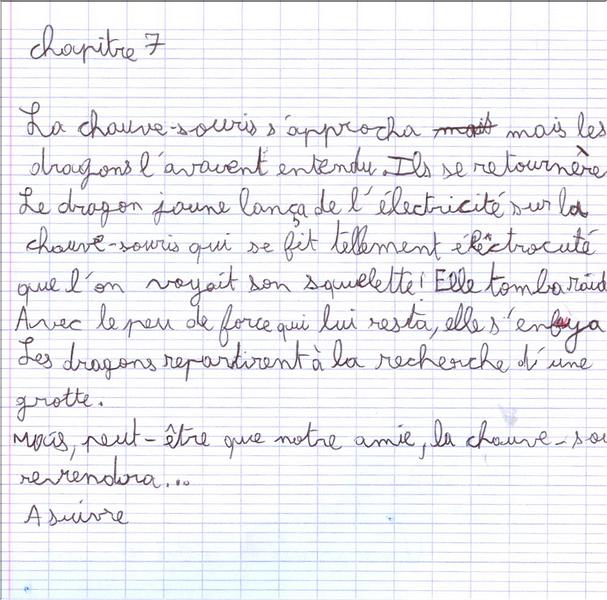 chapitre 7
La chauve-souris s'approcha mais mais les
dragons l'avaient entendu. Ils se retournère
Le dragon jaune lança de l'électricité sur la
chauve-souris qui se fit tellement électrocuté
que l'on voyait son squelette! Elle tomba raid
Avec le peu de force qui lui resta, elle s'envoya
Les dragons repartirent à la recherche d'une
grotte.
Mais, peut-être que notre amie, la chauve-sou
reviendra...
A suivre